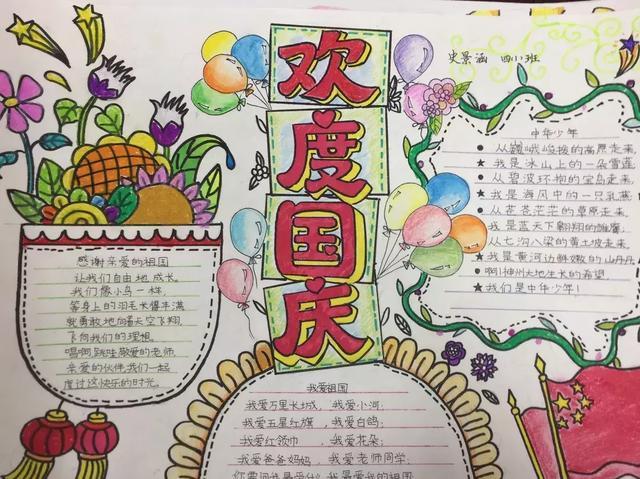 欢度国庆
史景涵 四(1)班
感谢亲爱的祖国
让我们自由地成长。
我们像小鸟一样,
等身上的羽毛长得丰满
就勇敢地向着天空飞翔
飞向我们的理想。
唱啊跳哇敬爱的老师
亲爱的伙伴我们一起
度过这快乐的时光。
中华少年
从巍峨峻拔的高原走来,
我是冰山上的一朵雪莲
从碧波环抱的宝岛走来,
我是海风中的一只乳燕
从苍苍茫茫的草原走来,
我是蓝天下翱翔的雏鹰
从七沟八梁的黄土坡走来,
我是黄河边鲜嫩的山丹丹
啊!神州大地生长的希望,
我们是中华少年!
我爱祖国
我爱万里长城,我爱小河;
我爱五星红旗,我爱白鸽;
我爱红领巾,我爱花朵;
我爱爸爸妈妈,我爱老师同学;
你要问我最爱什么 我最爱我的祖国